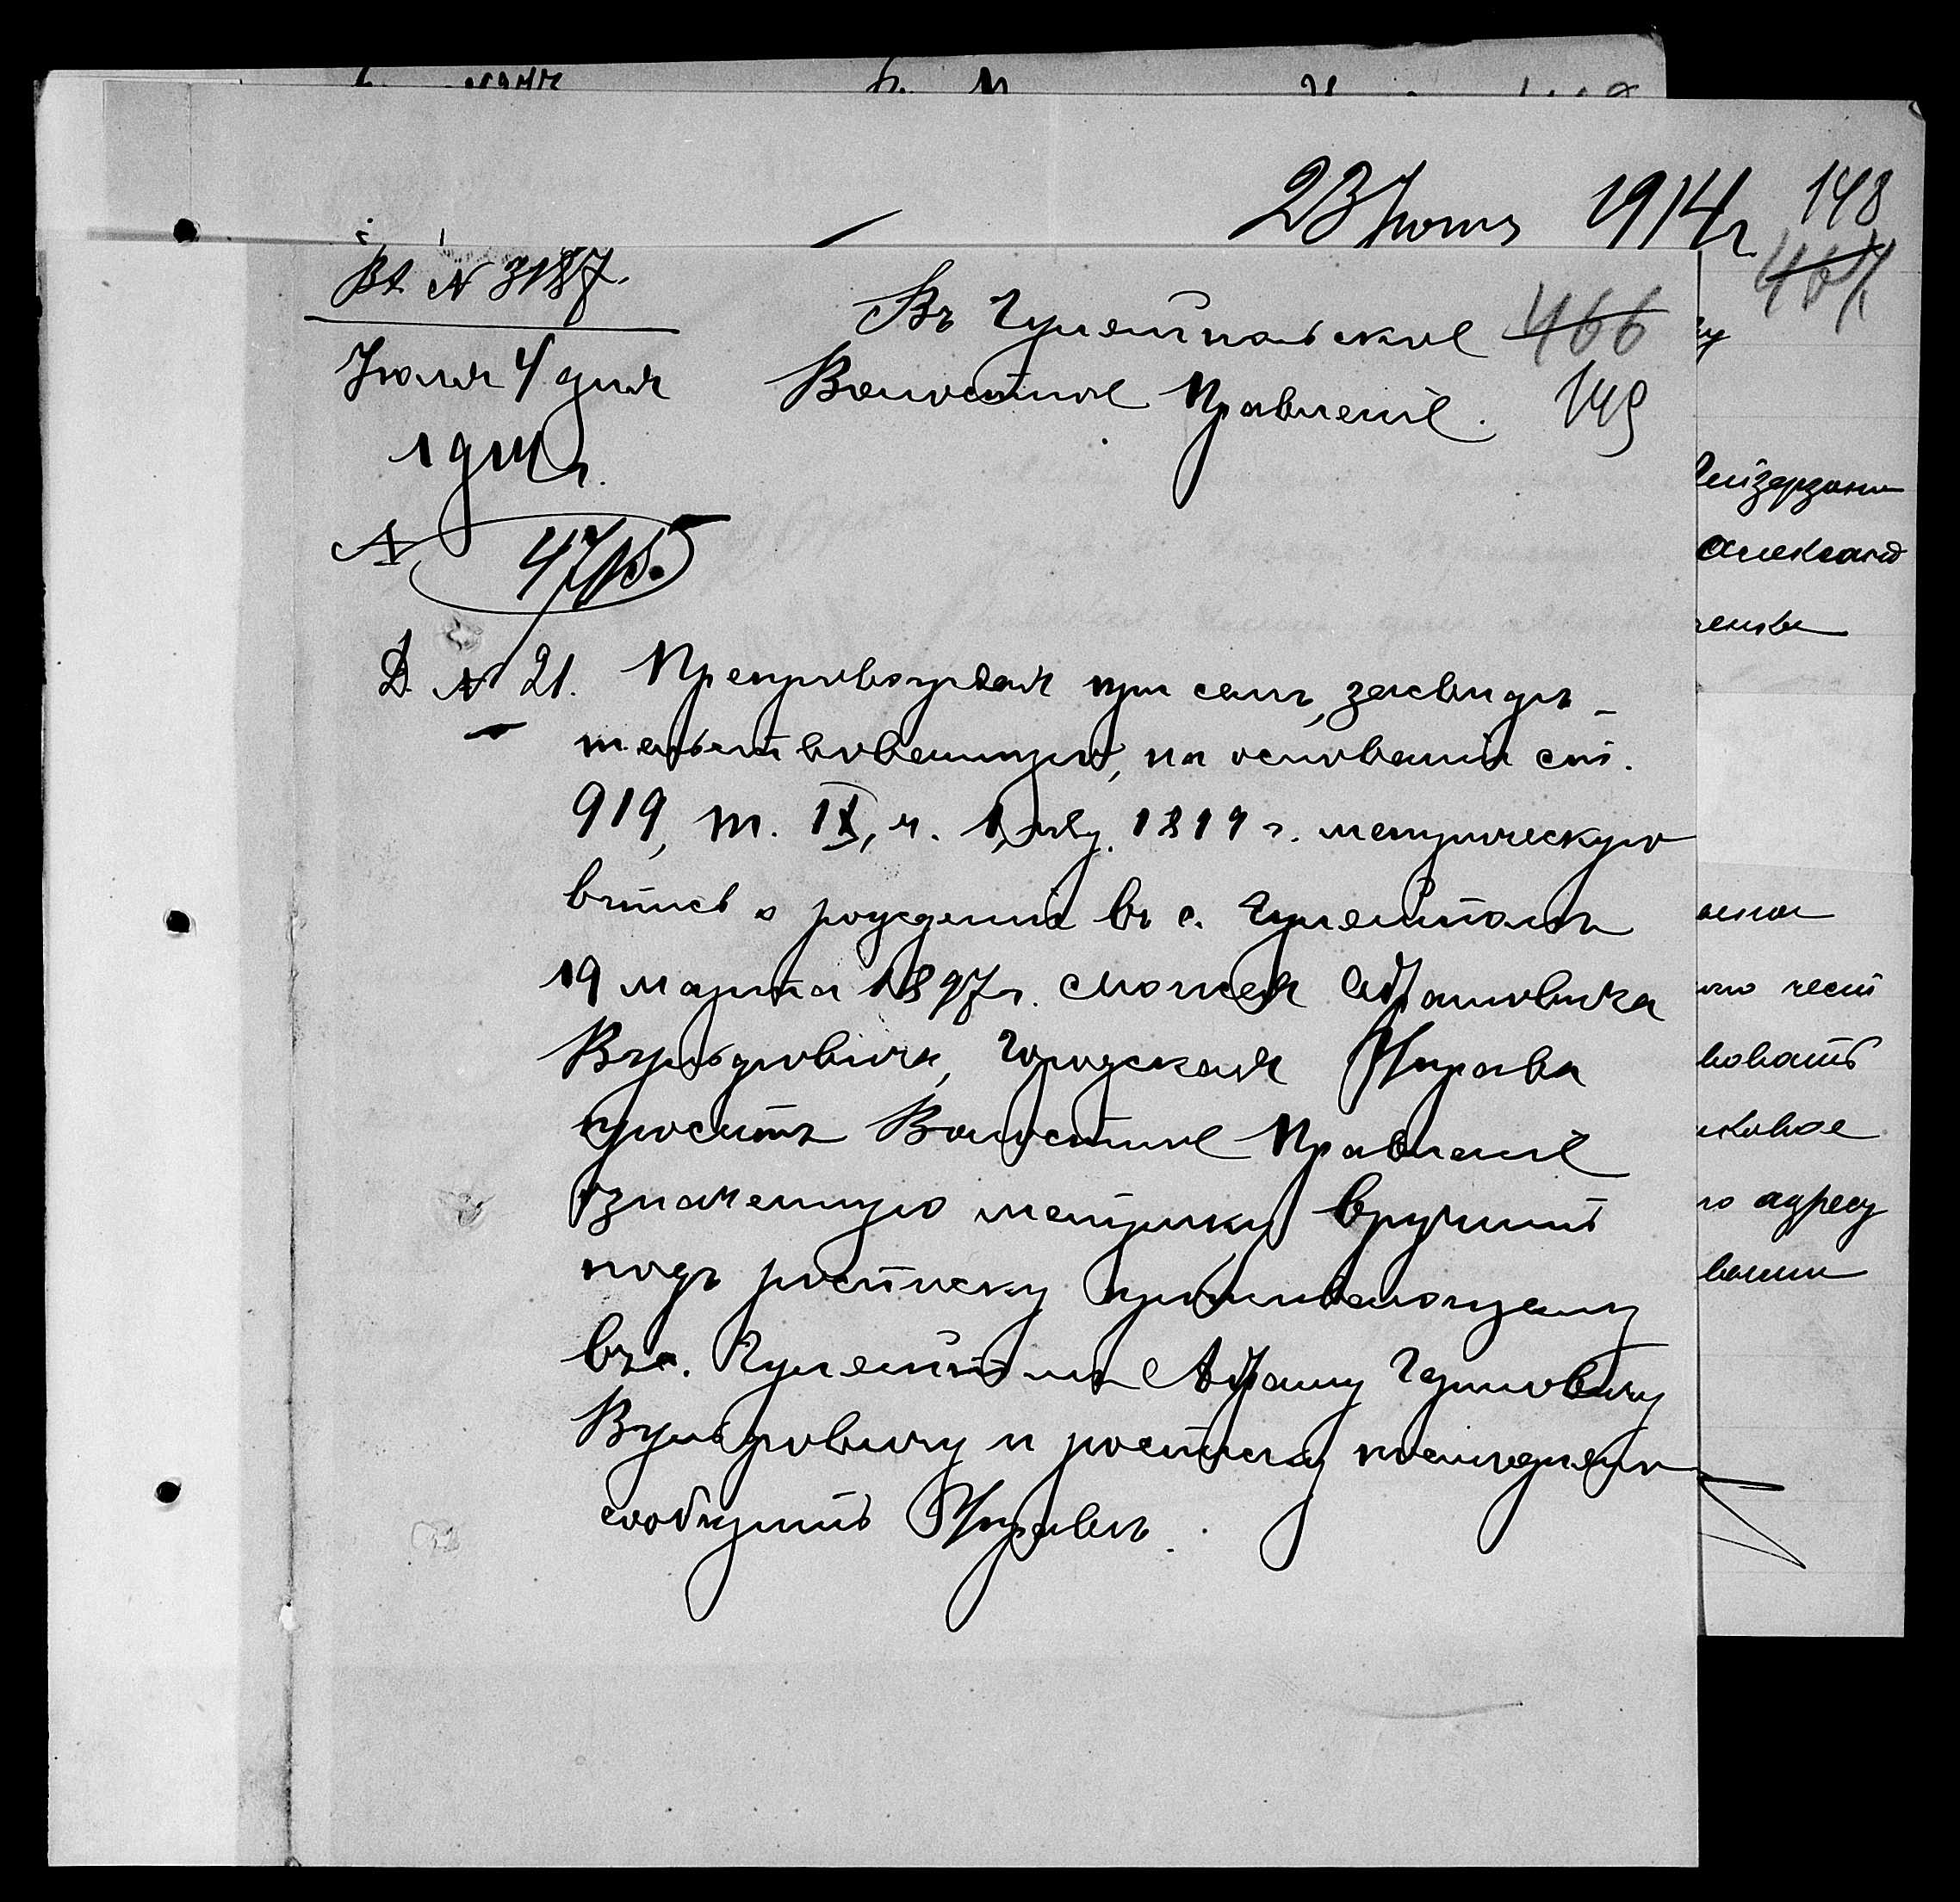 23 Июня 1914 г. 148
467
Вх. № 3187.
Іюля 4 дня
1914 г.
№ 4715.
Въ Гуляйпольское 466
Волостное Правленіе. 149
Д. № 21. Препровождая при семъ, засвидѣ-
тельствованную, на основаніи ст.
919, т. IX, ч. 1, изд. 1899 г. метрическую
выпись о рожденіи въ с. Гуляйполѣ
19 марта 1897 г. Мошея Абрамовича
Вульфовича, Городская Управа
проситъ Волостное Правленіе
означенную метрику вручить
подъ росписку проживающему
въ с. Гуляйполѣ Абраму
Вульфовичу и росписку последняго
сообщить Управѣ.
Александ
ренки
чест
ковое
по адресу